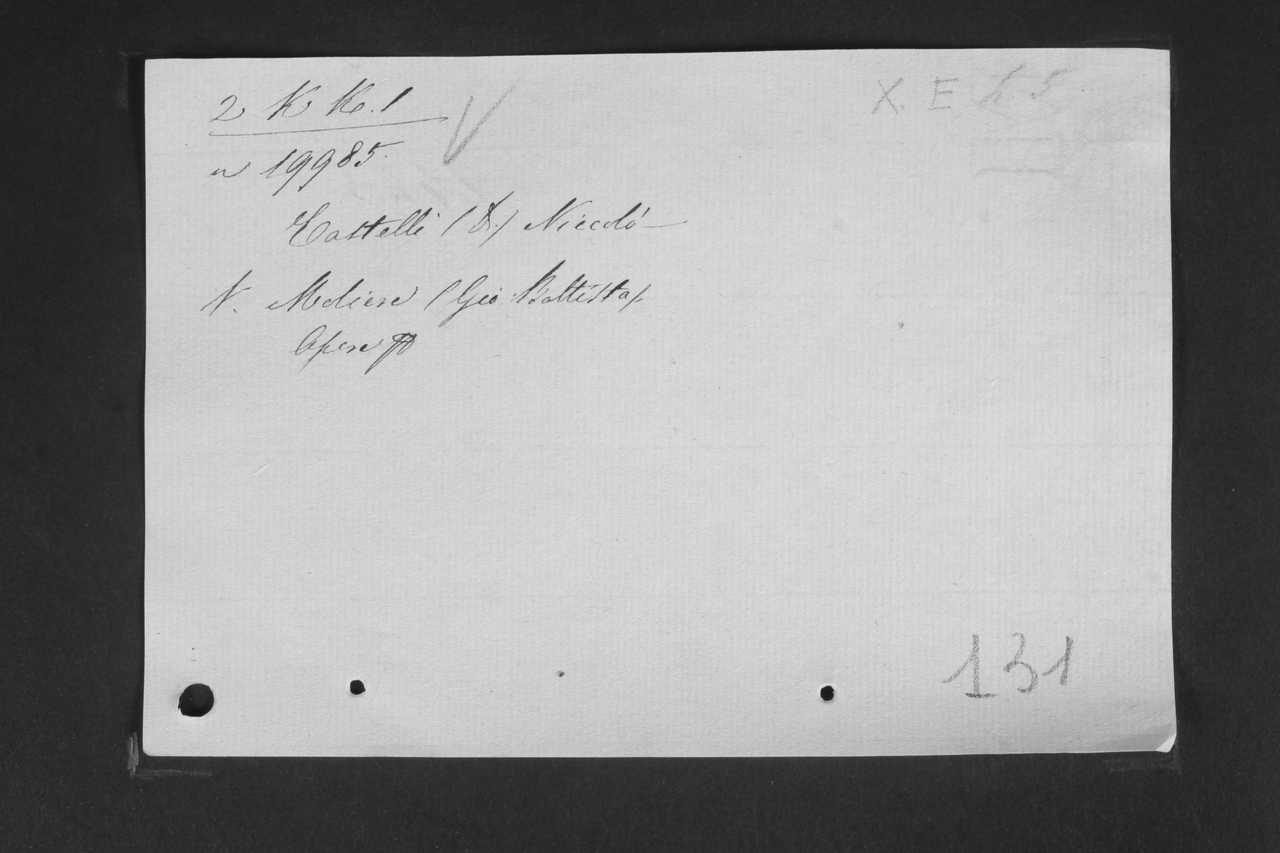 2 K K. 1
X. E
n 19985.
Castelli (D.) Niccolò —
V. Moliere (Gio: Battista).
Opere
131